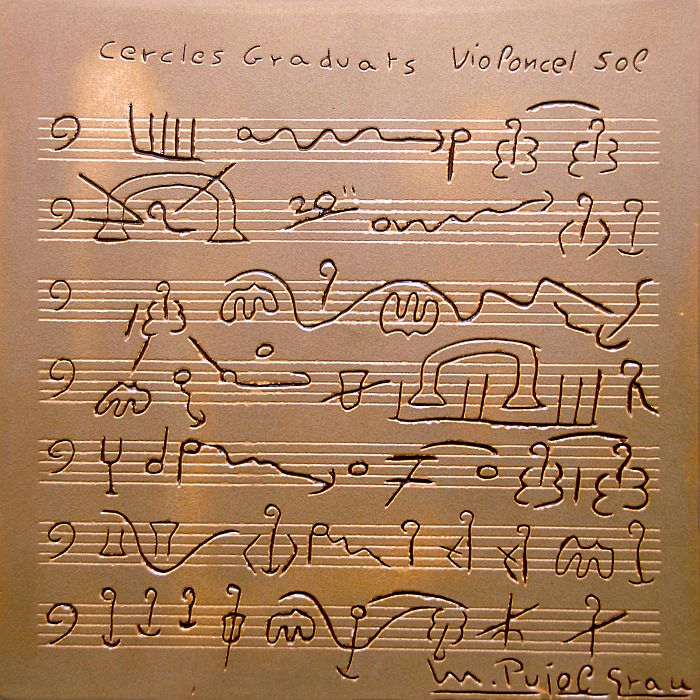 Cercles Graduats Violoncel Sol
20"
M. Pujol Grau